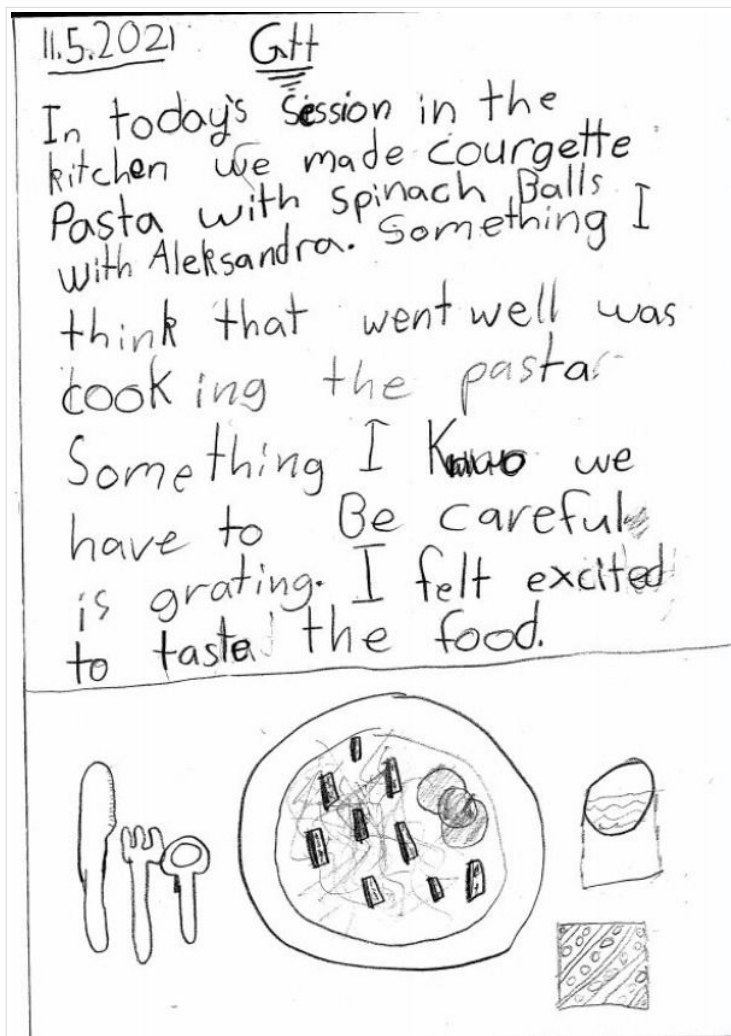 11.5.2021 GH
In today's Session in the
kitchen we made courgette
Pasta with Spinach Balls
with Aleksandra. Something I
think that went well was
cooking the pasta
Something I Know we
have to Be careful
is grating. I felt excited
to taste the food.